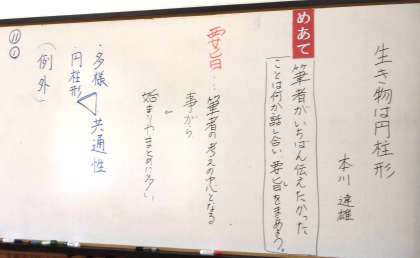 生き物は円柱形
本川 達雄
めあて
筆者がいちばん伝えたかった
ことは何か話し合い、要旨をまとめよう。
要旨…筆者の考えの中心となる
事がら
始まりやまとめに多い
・多様
共通性
・円柱形
(例外)
11
①